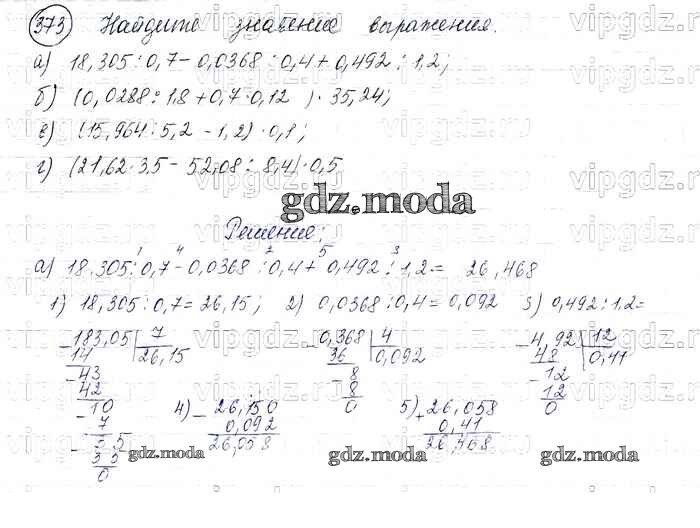 373 Найдите значение выражения.
а) 18,305 : 0,7 - 0,0368 : 0,4 + 0,492 : 1,2;
б) (0,0288 : 1,8 + 0,7 · 0,12 ) · 35,24;
в) (15,964 : 5,2 - 1,2) · 0,1;
г) (21,62 · 3,5 - 52,08 : 8,4) · 0,5
gdz.moda
Решение;
1 4 2 5 3
а) 18,305 : 0,7 - 0,0368 : 0,4 + 0,492 : 1,2 = 26,468
1) 18,305 : 0,7 = 26,15; 2) 0,0368 : 0,4 = 0,092 3) 0,492 : 1,2 =
- 183,05 7 - 0,368 4 - 4,92 12
14 26,15 36 0,092 48 0,41
- 43 - 8 - 12
42 8 12
- 10 0 0
7 4) - 26,150 5) + 26,058
- 35 0,092 0,41
35 26,058 26,468
0
gdz.moda gdz.moda gdz.moda
vipgdz.ru vipgdz.ru vipgdz.ru vipgdz.ru